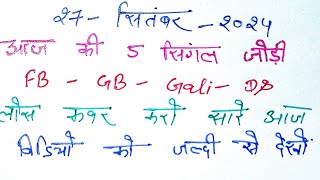 27 - सितंबर - २०२५
आज की 5 सिंगल जोड़ी
FB - GB - Gali - DS
लोस कवर करो सारे आज
विडियो को जल्दी से देखो